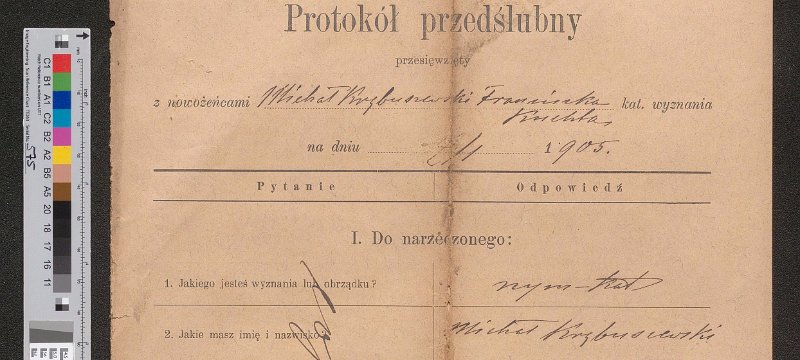 Protokół przedślubny
przesięwzięty
z nowożeńcami Michał Krzbuszewski Franciszka kat. wyznania
Kuchta
na dniu 1905.
Pytanie Odpowiedź
I. Do narzeczonego:
1. Jakiego jesteś wyznania lub obrządku? rzym-kat
2. Jakie masz imię i nazwisko? Michał Krzbuszewski
C1 B1 A1 C2 B2 A2 B5 A5 20 18 17 16 11
575